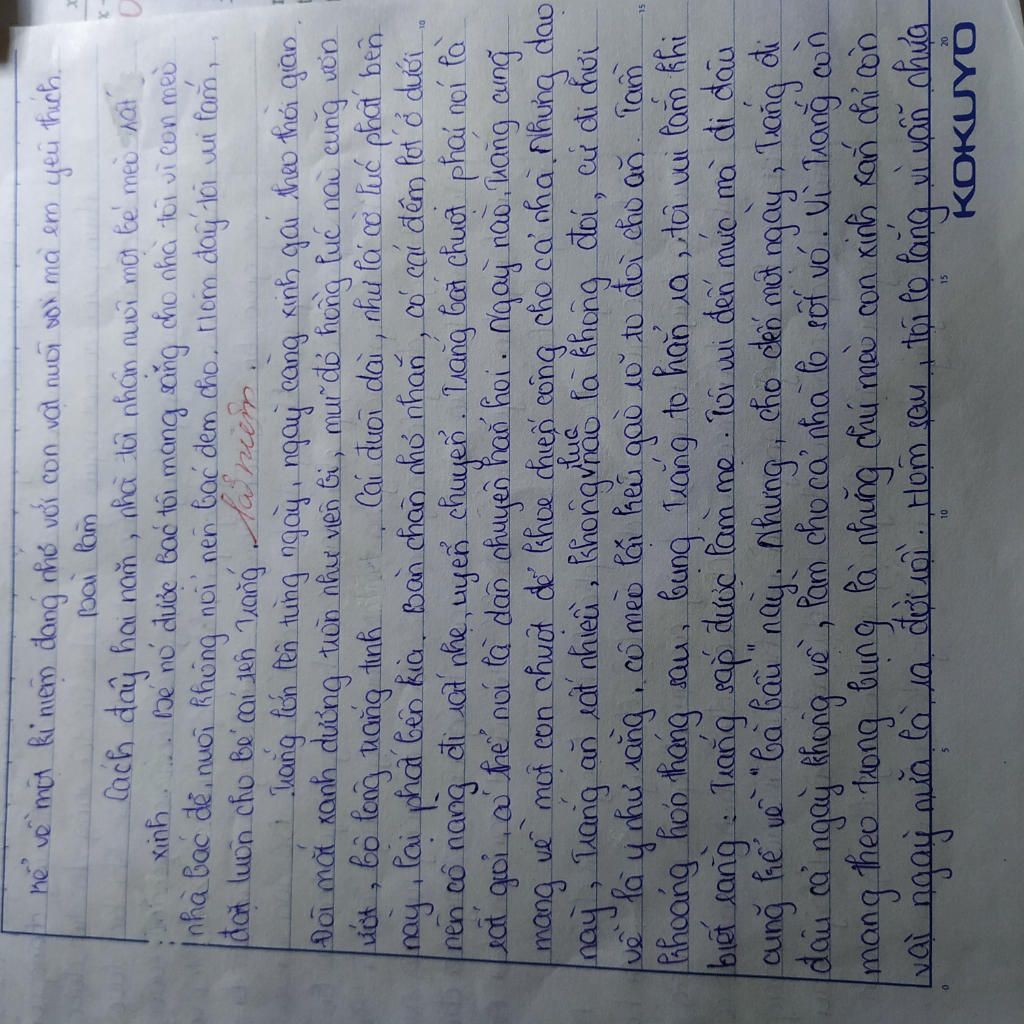 Kể về một kỉ niệm đáng nhớ với con vật nuôi mà em yêu thích.
Bài làm
Cách đây hai năm, nhà tôi nhận nuôi một bé mèo rất
xinh. Bé nó được bác tôi mang sang cho nhà tôi vì con mèo
nhà bác đẻ, nuôi không nổi nên bác đem cho. Hôm đấy tôi vui lắm,
đặt luôn cho bé cái tên Trắng.
Trắng lớn lên từng ngày, ngày càng xinh gái theo thời gian.
Đôi mắt xanh dương tròn như viên bi, mũi đỏ hồng lúc nào cũng ươn
ướt, bộ lông trắng tinh. Cái đuôi dài, như lá cờ lúc phất bên
này, lại phất bên kia. Bàn chân nhỏ nhắn, có cái đệm lót ở dưới
nên cô nàng đi rất nhẹ, uyển chuyển. Trắng bắt chuột phải nói là
rất giỏi, có thể nói là dân chuyên hẳn hoi. Ngày nào, Trắng cũng
mang về một con chuột để khoe chiến công cho cả nhà. Nhưng dạo
này, Trắng ăn rất nhiều, không lúc nào là không đói, cứ đi chơi
về là y như rằng, cô mèo lại kêu gào rõ to đòi cho ăn. Tầm
khoảng hơn tháng sau, bụng Trắng to hẳn ra, tôi vui lắm khi
biết rằng: Trắng sắp được làm mẹ. Tôi vui đến mức mà đi đâu
cũng kể về "bà bầu" này. Nhưng, cho đến một ngày, Trắng đi
đâu cả ngày không về, làm cho cả nhà lo sốt vó. Vì Trắng còn
mang theo trong bụng là những chú mèo con xinh xắn chỉ còn
vài ngày nữa là ra đời rồi. Hôm sau, tôi lo lắng vì vẫn chưa
KOKUYO
0
5
10
15
20
10
15